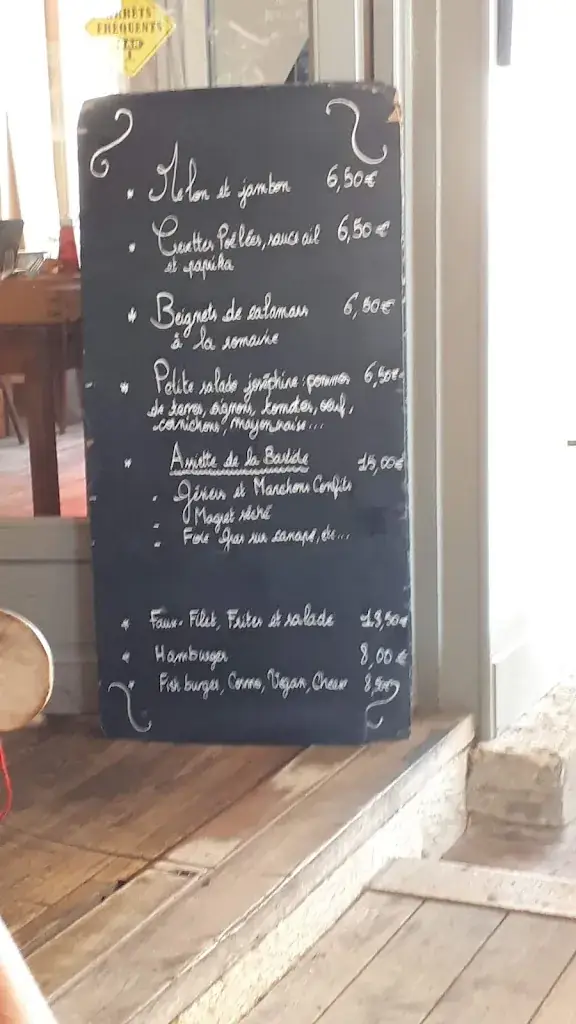 ARRÊTS
FREQUENTS
Melon et jambon 6,50€
Crevettes Poêlées, sauce ail 6,50€
et paprika
Beignets de calamars 6,50€
à la romaine
Petite salade joséphine : pommes 6,50€
de terres, oignons, tomates, oeuf,
cornichons, mayonnaise...
Assiette de la Bastide 15,00€
- Gésiers et Manchons Confits
- Magret séché
- Foie Gras sur canapé, etc...
Faux-Filet, Frites et salade 13,50€
Hamburger 8,00€
Fish burger, Vegan, Cheese 8,50€